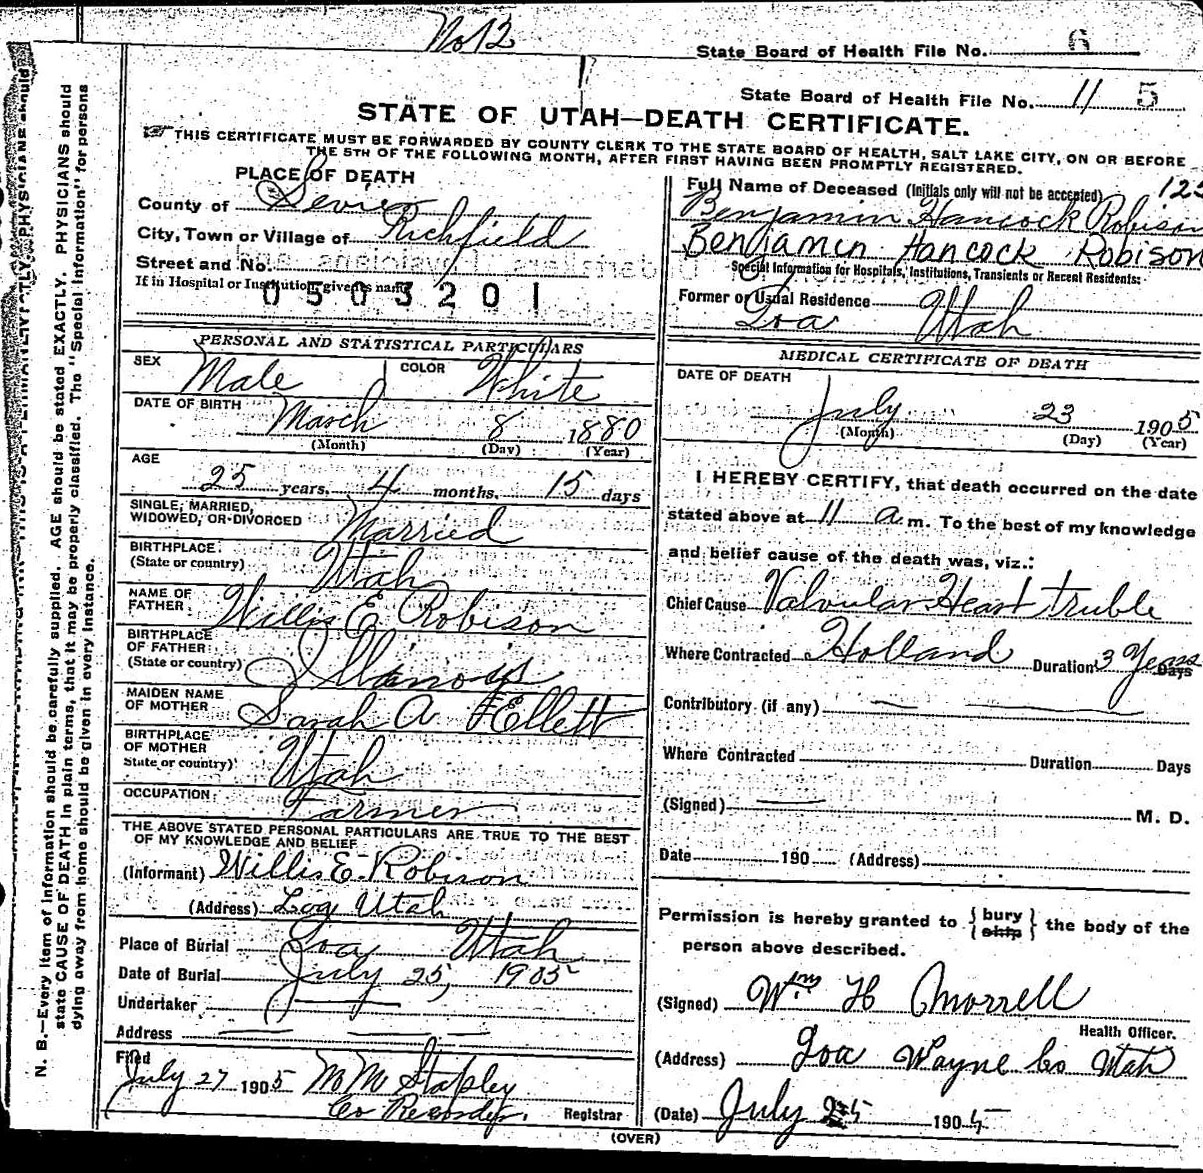 No 12
State Board of Health File No. 6
State Board of Health File No. 11 5
STATE OF UTAH—DEATH CERTIFICATE.
THIS CERTIFICATE MUST BE FORWARDED BY COUNTY CLERK TO THE STATE BOARD OF HEALTH, SALT LAKE CITY, ON OR BEFORE
THE 5TH OF THE FOLLOWING MONTH, AFTER FIRST HAVING BEEN PROMPTLY REGISTERED.
PLACE OF DEATH
County of Sevier
City, Town or Village of Richfield
Street and No.
If in Hospital or Institution, give its name
0503201
Full Name of Deceased (Initials only will not be accepted) 125
Benjamin Hancock Robison
Benjamin Hancock Robison
Special Information for Hospitals, Institutions, Transients or Recent Residents:
Former or Usual Residence
Loa Utah
PERSONAL AND STATISTICAL PARTICULARS
SEX Male COLOR White
DATE OF BIRTH March 8 1880
(Month) (Day) (Year)
AGE
25 years, 4 months, 15 days
SINGLE, MARRIED,
WIDOWED, OR DIVORCED Married
BIRTHPLACE
(State or country) Utah
NAME OF
FATHER Willis E Robison
BIRTHPLACE
OF FATHER
(State or country) Illinois
MAIDEN NAME
OF MOTHER Sarah A Ellett
BIRTHPLACE
OF MOTHER
State or country) Utah
OCCUPATION Farmer
THE ABOVE STATED PERSONAL PARTICULARS ARE TRUE TO THE BEST
OF MY KNOWLEDGE AND BELIEF
(Informant) Willis E. Robison
(Address) Loa Utah
Place of Burial Loa Utah
Date of Burial July 25, 1905
Undertaker
Address
Filed
July 27 1905 Stapley
Co Recorder. Registrar
MEDICAL CERTIFICATE OF DEATH
DATE OF DEATH
July 23 1905
(Month) (Day) (Year)
I HEREBY CERTIFY, that death occurred on the date
stated above at 11 a m. To the best of my knowledge
and belief cause of the death was, viz.:
Chief Cause Valvular Heart truble
Where Contracted Holland Duration 3 Years Days
Contributory (if any)
Where Contracted Duration Days
(Signed) M. D.
Date 190 (Address)
Permission is hereby granted to { bury ship } the body of the
person above described.
(Signed) Wm H Morrell
Health Officer.
(Address) Loa Wayne Co Utah
(Date) July 25 1905
(OVER)
N. B.—Every item of information should be carefully supplied. AGE should be stated EXACTLY. PHYSICIANS should
state CAUSE OF DEATH in plain terms, that it may be properly classified. The "Special Information" for persons
dying away from home should be given in every instance.